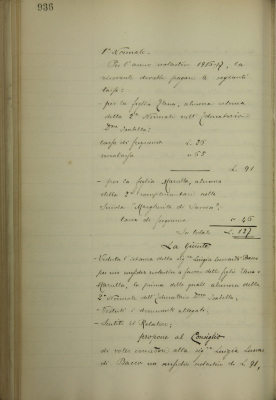 936
Per l'anno scolastico 1916-17, la
ricorrente dovette pagare le seguenti
tasse:
- per la figlia Elena, alunna interna
della 2ª Normale nell'Educatorio
Isabella:
tassa di frequenza L. 25
L. 91
- per la figlia Marcella, alunna
della 2ª complementare nella
Scuola "Margherita di Savoia",
tassa di frequenza " 46
In totale L. 137
La Giunta
- Veduta l'istanza della Sig.ra Luigia
per un sussidio scolastico a favore delle figlie Elena e
Marcella, la prima delle quali alunna della
2ª Normale dell'Educatorio Isabella;
- Veduti i documenti allegati;
- Sentito il Relatore;
propone al Consiglio
di voler concedere alla Sig.ra Luigia
di Basso un sussidio scolastico di L. 91,